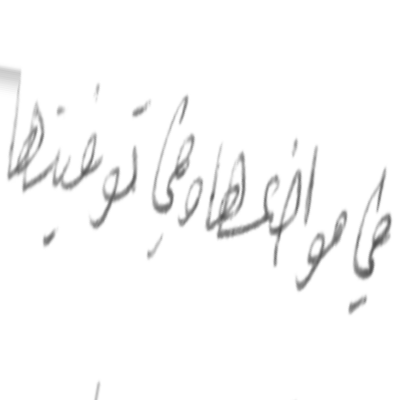 في مواضعها وفي توفيرها